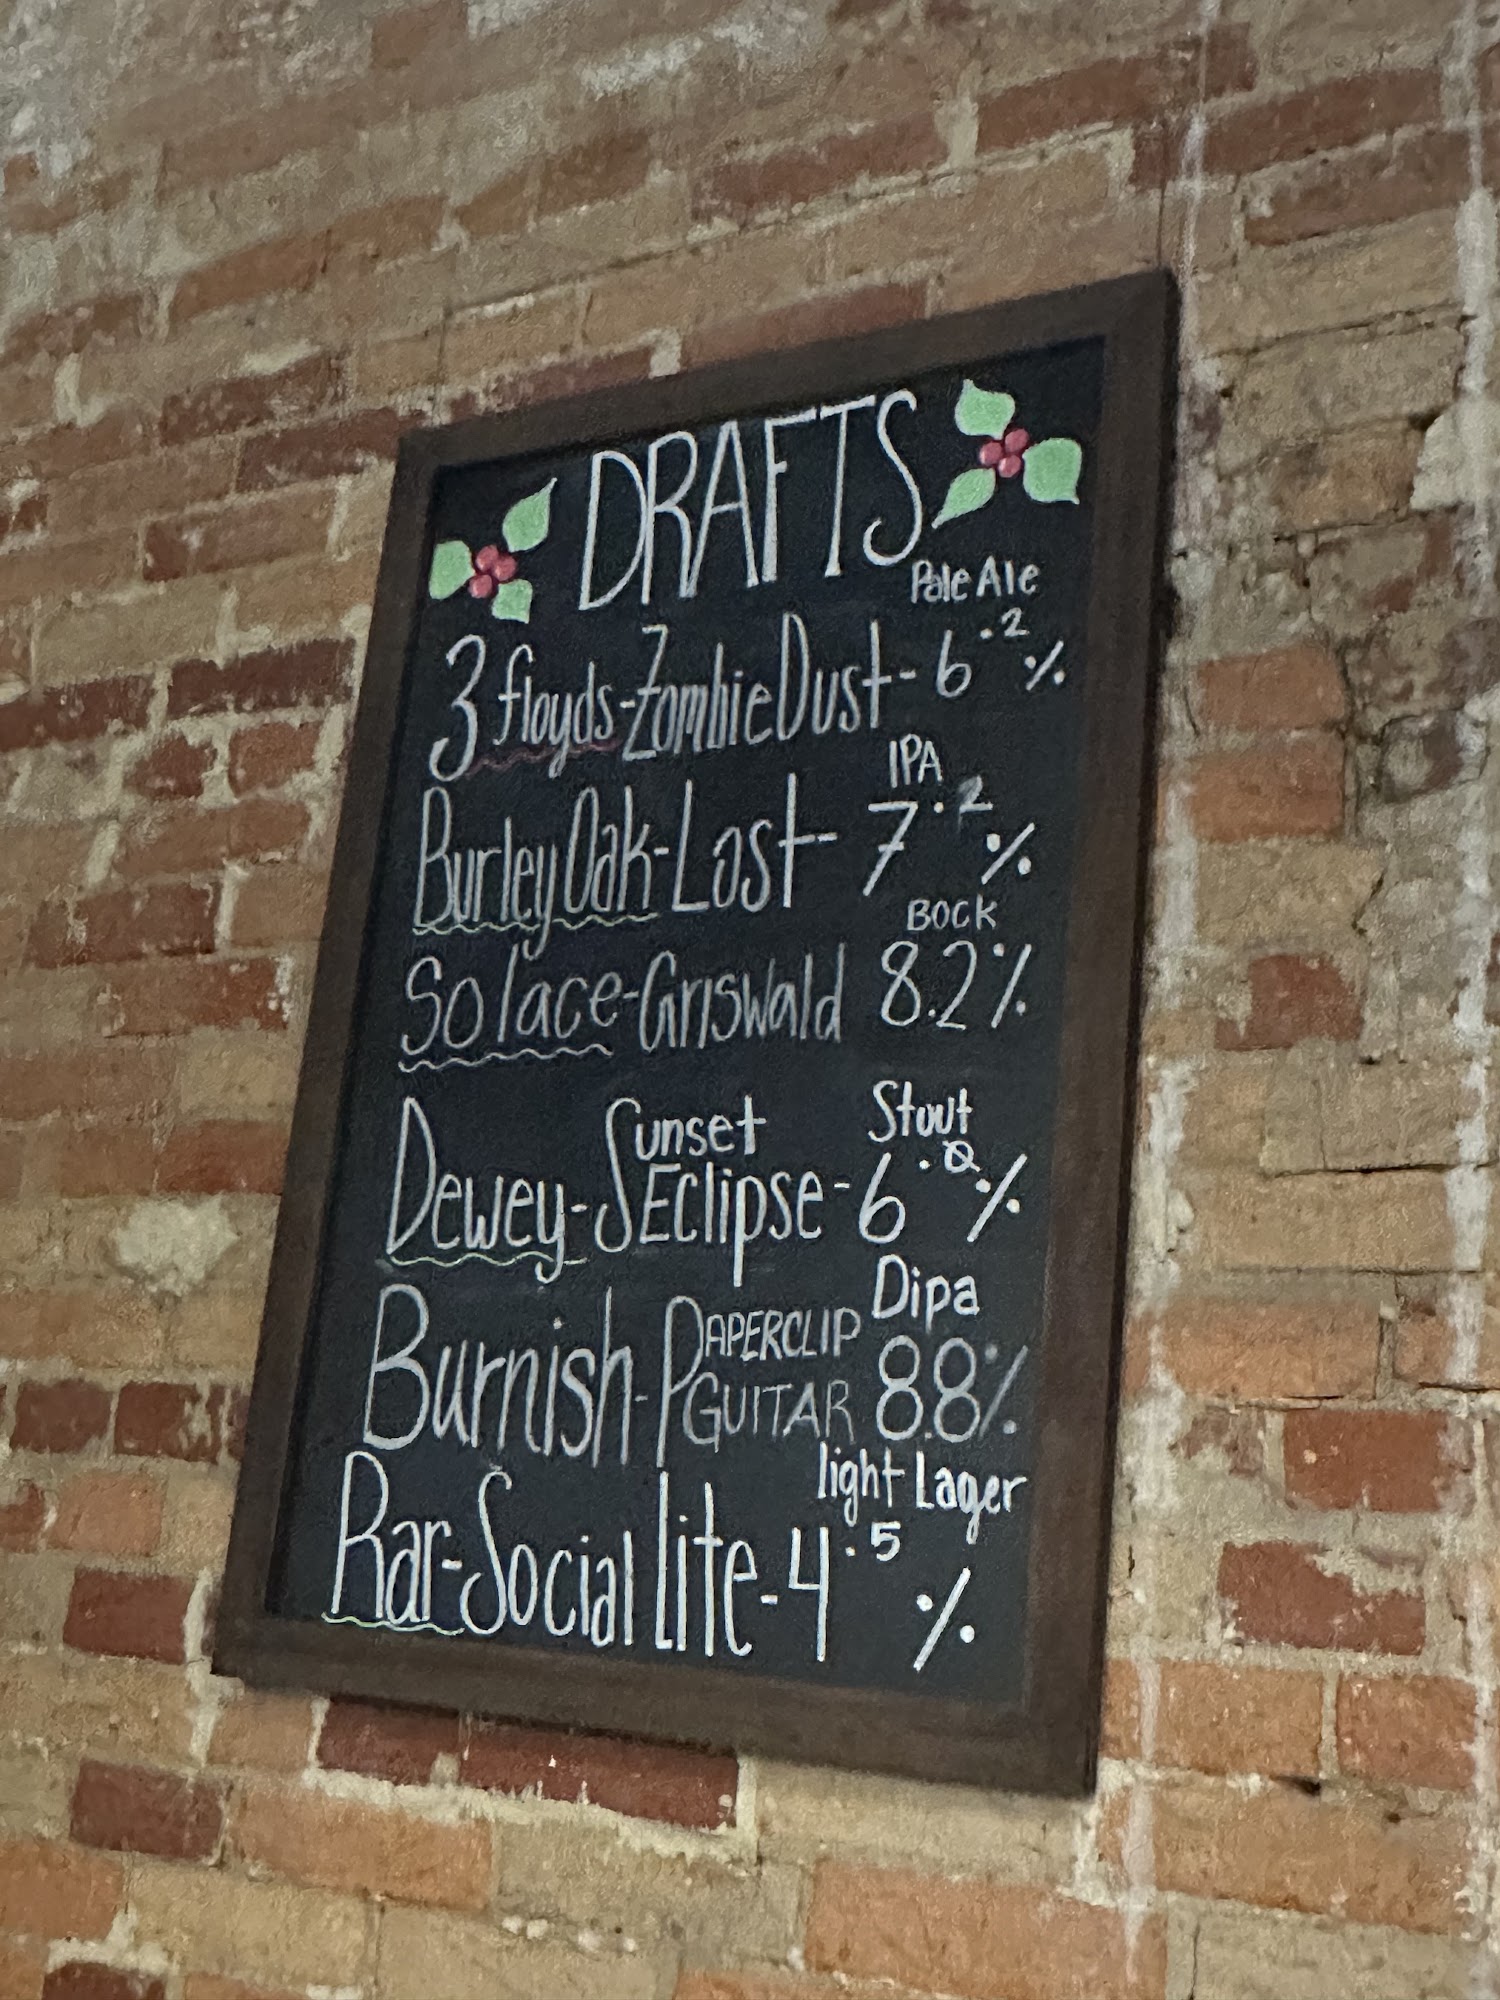 DRAFTS
Pale Ale
3 floyds-Zombie Dust-6.2%
IPA
Burley Oak-Lost-7.2%
BOCK
Solace-Griswald 8.2%
Stout
Dewey-Sunset Eclipse-6.0%
Dipa
Burnish-PAPERCLIP GUITAR 8.8%
light Lager
Rar-Social lite-4.5%